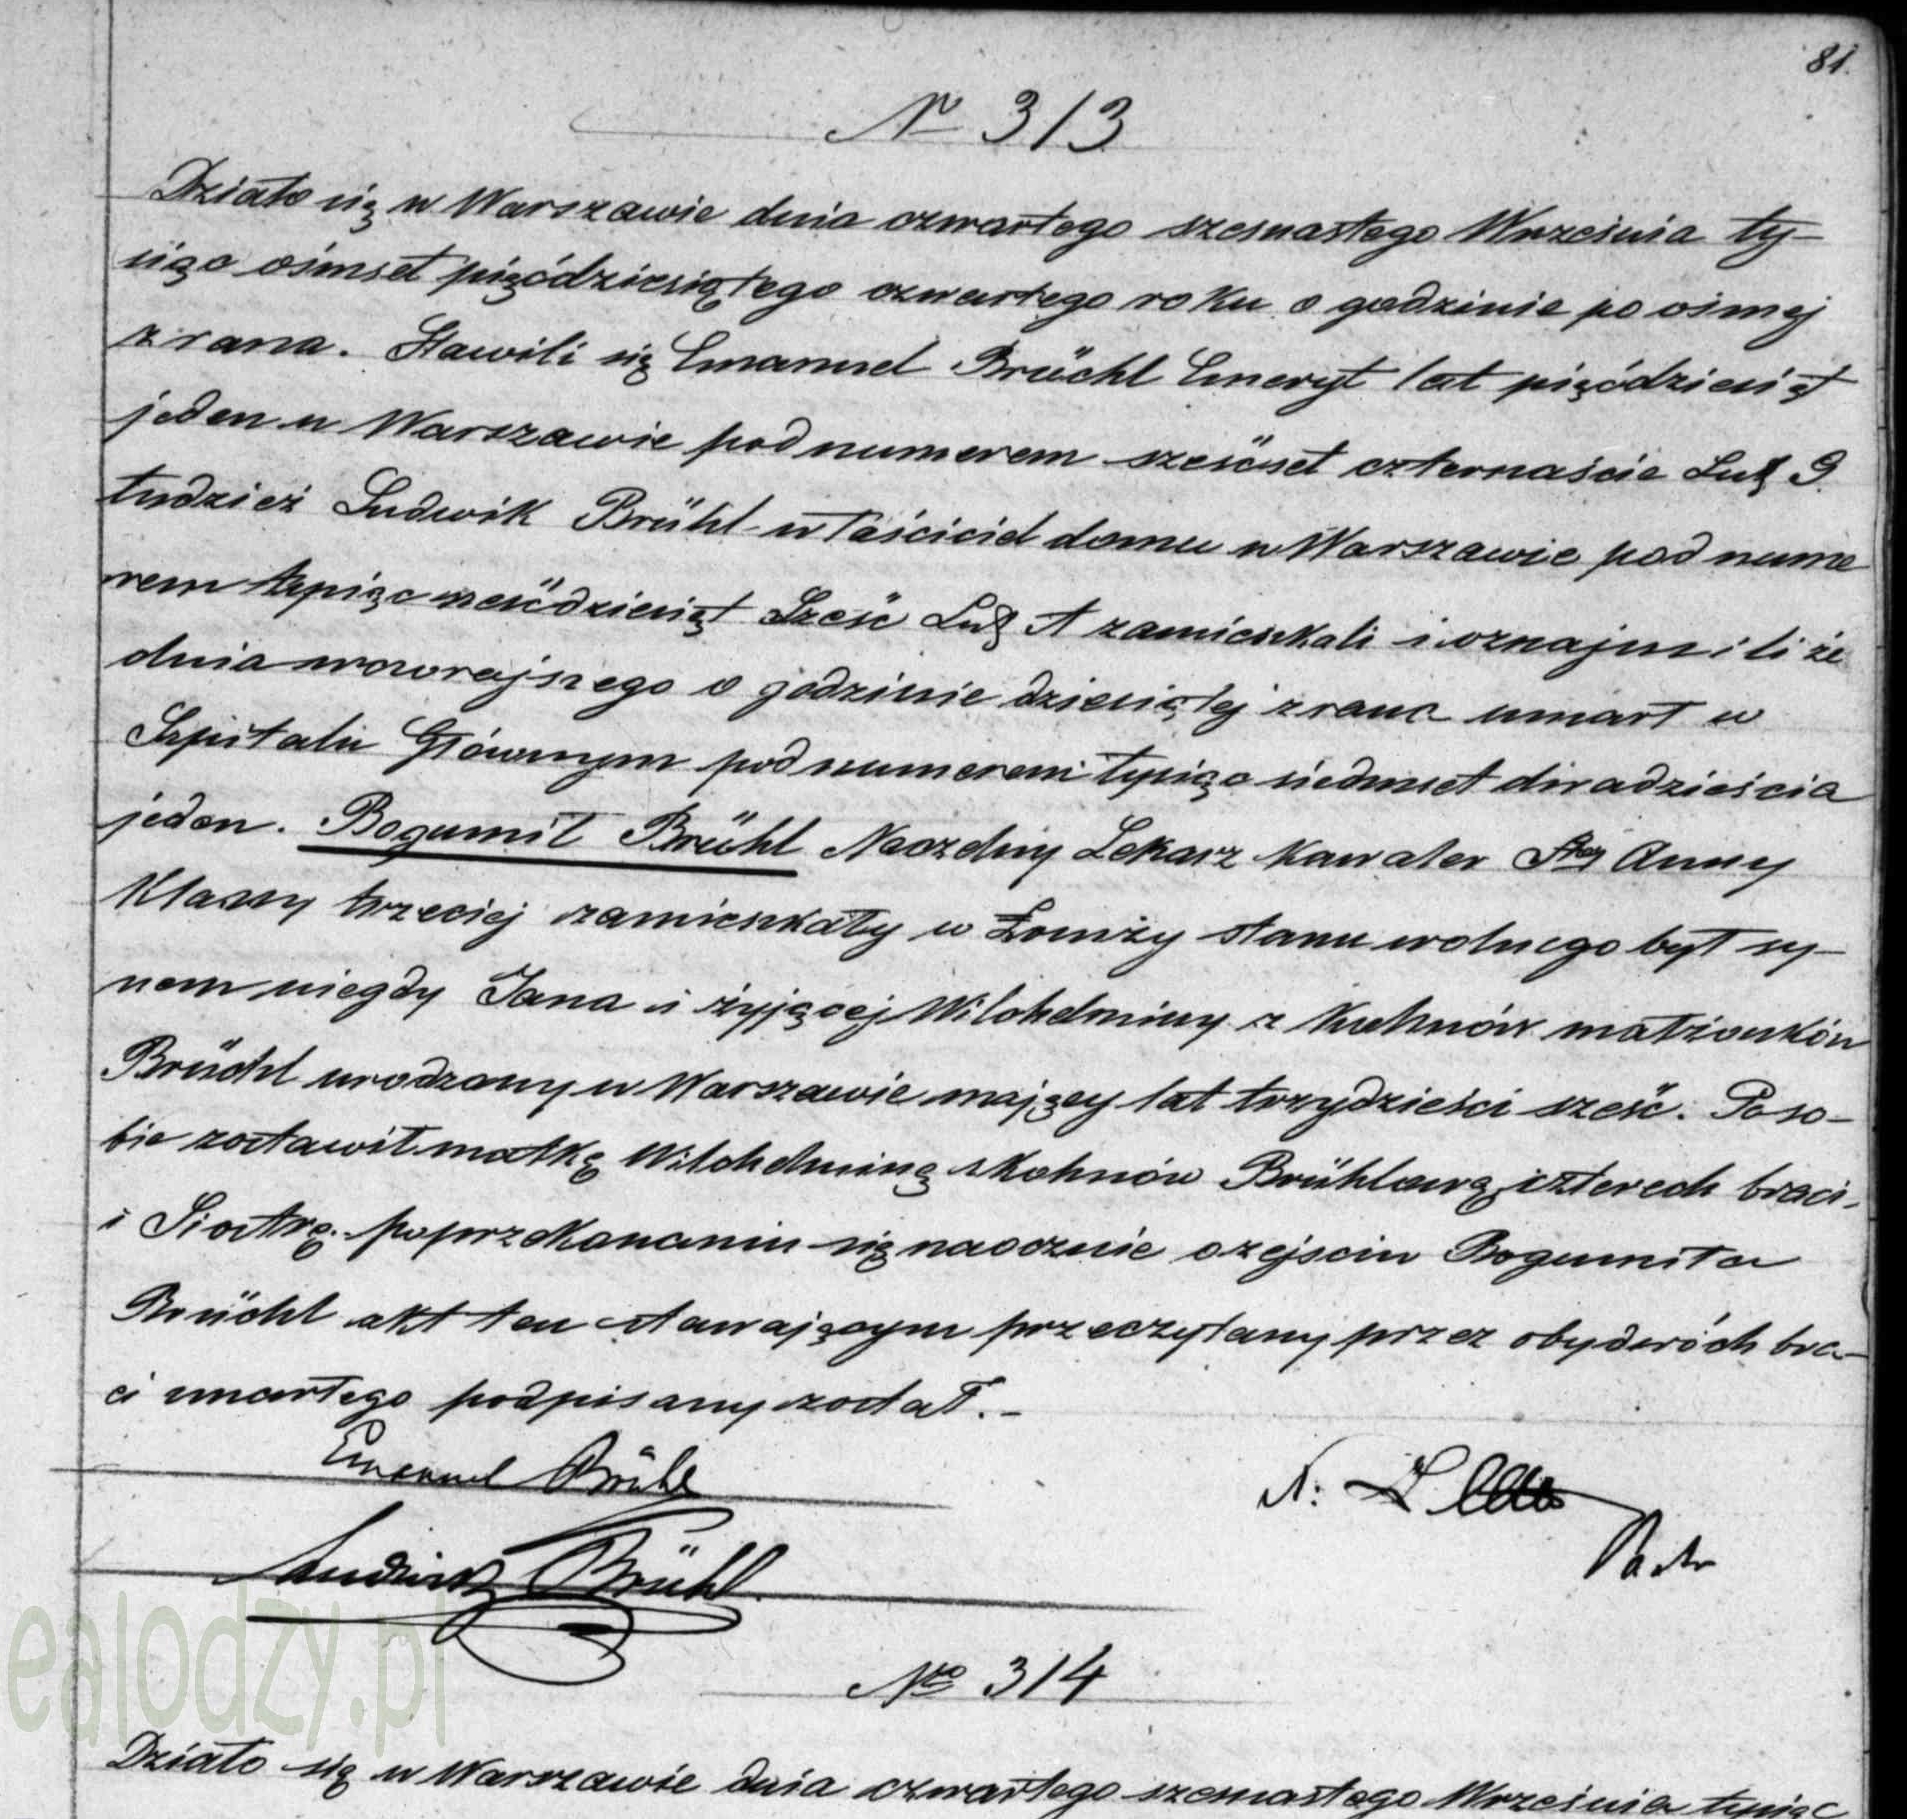 81.
№ 313
Działo się w Warszawie dnia czwartego szesnastego Września ty-
siąc ośmset pięćdziesiątego czwartego roku o godzinie po ósmej
z rana. Stawili się Emanuel Brüchl Emeryt lat pięćdziesiąt
jeden w Warszawie pod numerem sześćset czternaście Lit G
tudzież Ludwik Brühl właściciel domu w Warszawie pod nume
rem tysiąc sześćdziesiąt Sześć Lit A zamieszkali i oznajmili że
dnia wczorajszego o godzinie dziewiątej z rana umarł w
Szpitalu Głównym pod numerem tysiąc siedmset dwadzieścia
jeden. Bogumił Brühl Naczelny Lekarz Kawaler Stej Anny
Klassy trzeciej zamieszkały w Łomży stanu wolnego był sy-
nem niegdy Jana i żyjącej Wilchelminy z Kuhnów małżonków
Brüchl urodzony w Warszawie mający lat trzydzieści sześć. Po so-
bie zostawił matkę Wilchelminę z Kohnów Brühlową, czterech braci,
i Siostrę. po przekonaniu się naocznie o zejściu Bogumiła
Brüchl akt ten stawającym przeczytany przez obydwóch bra-
ci umarłego podpisany został. -
Emanuel Brühl
Ludwik Brühl
№ 314
Działo się w Warszawie dnia czwartego szesnastego Września tysiąc
ealodzy.pl